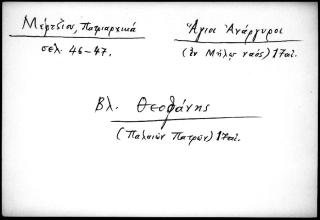 Μέρτζιου, Πατριαρχικά
σελ. 46-47.
Ἅγιοι Ἀνάργυροι
(ἐν Μήλῳ ναός) 17 αἰ.
Βλ. Θεοφάνης
(Παλαιῶν Πατρῶν) 17 αἰ.